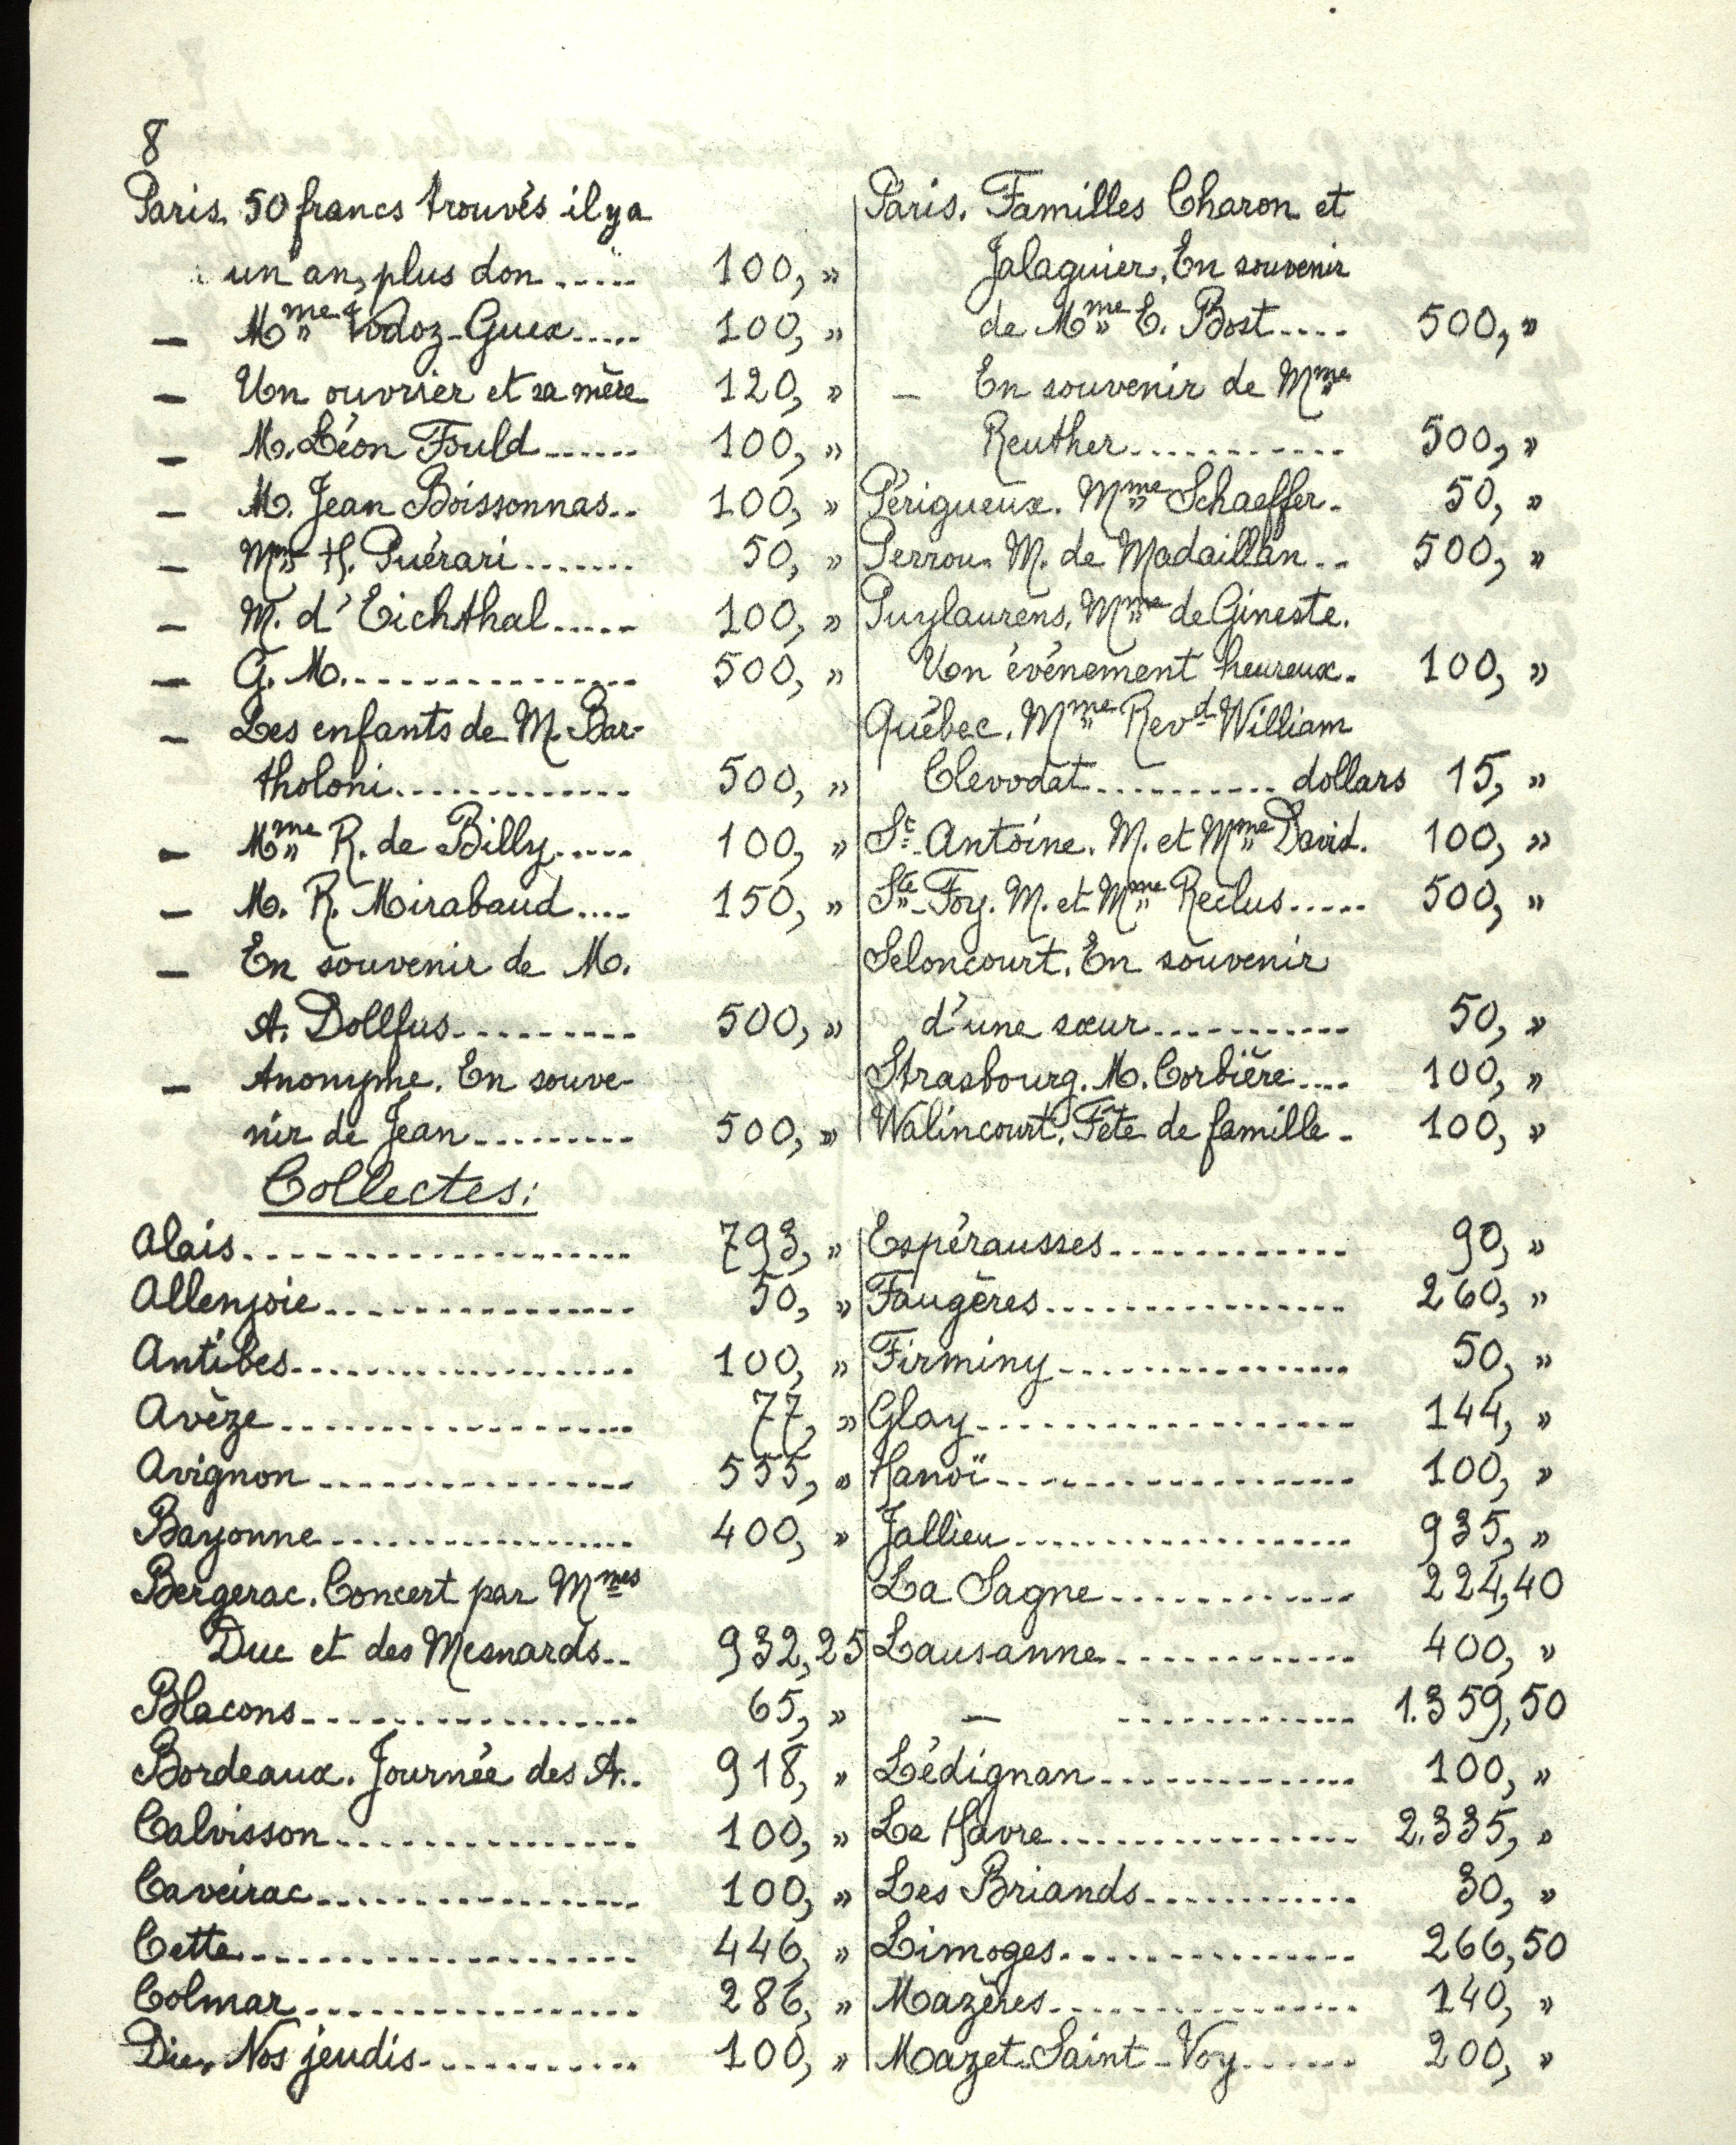 8
Paris. 50 francs trouvés il y a
un an, plus don ..... 100, »
— Mme Vodoz-Guex ..... 100, »
— Un ouvrier et sa mère 120, »
— M. Léon Fould ...... 100, »
— M. Jean Boissonnas .. 100, »
— Mme H. Puérari ....... 50, »
— M. d'Eichthal ..... 100, »
— G. M. ............... 500, »
— Les enfants de M. Bar-
tholoni ............. 500, »
— Mme R. de Billy ..... 100, »
— M. R. Mirabaud .... 150, »
— En souvenir de M.
A. Dollfus ......... 500, »
— Anonyme. En souve-
nir de Jean ......... 500, »
Paris. Familles Charon et
Jalaguier. En souvenir
de Mme E. Bost .... 500, »
— En souvenir de Mme
Reuther ........... 500, »
Périgueux. Mme Schaeffer. 50, »
Perrou. M. de Madaillan .. 500, »
Puylaurens. Mme de Gineste.
Un événement heureux. 100, »
Québec. Mme Revd William
Clevodat .......... dollars 15, »
St-Antoine. M. et Mme David. 100, »
Ste-Foy. M. et Mme Reclus ..... 500, »
Seloncourt. En souvenir
d'une sœur ........... 50, »
Strasbourg. M. Corbière .... 100, »
Walincourt. Fête de famille - 100, »
Collectes:
Alais .................. 793, »
Allenjoie ............... 50, »
Antibes .................. 100, »
Avèze ................. 77, »
Avignon ................ 555, »
Bayonne ................. 400, »
Bergerac. Concert par Mmes
Duc et des Mesnards .. 932,25
Blacons ................ 65, »
Bordeaux. Journée des A.. 918, »
Calvisson ............... 100, »
Caveirac ................ 100, »
Cette ................... 446, »
Colmar ................. 286, »
Die. Nos jeudis ........... 100, »
Espérausses ............ 90, »
Faugères ................ 260, »
Firminy ............... 50, »
Glay .................. 144, »
Hanoï .................. 100, »
Jallieu .................. 935, »
La Sagne ............. 224,40
Lausanne ............. 400, »
— ............. 1.359,50
Lédignan .............. 100, »
Le Havre ................ 2.335, »
Les Briands ............ 30, »
Limoges ............... 266,50
Mazères ................ 140, »
Mazet-Saint-Voy ...... 200, »